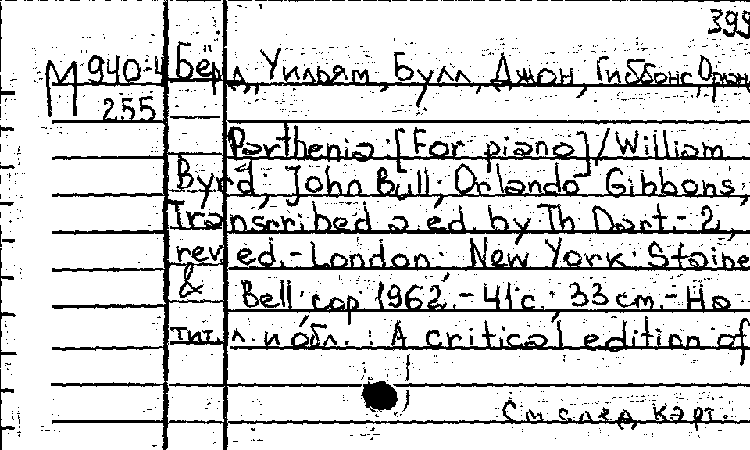 399
М 940-4 Бёрд, Уильям, Булл, Джон, Гиббонс,
255
Parthenia: [For piano] / William
Byrd; John Bull; Orlando Gibbons;
Transcribed a. ed. by Th. Dart.- 2,
rev. ed.- London; New York: Staine
& Bell: cop. 1962.- 41 с.; 33 см.- На
тит. л. и обл.: A critical edition of
См. след. карт.